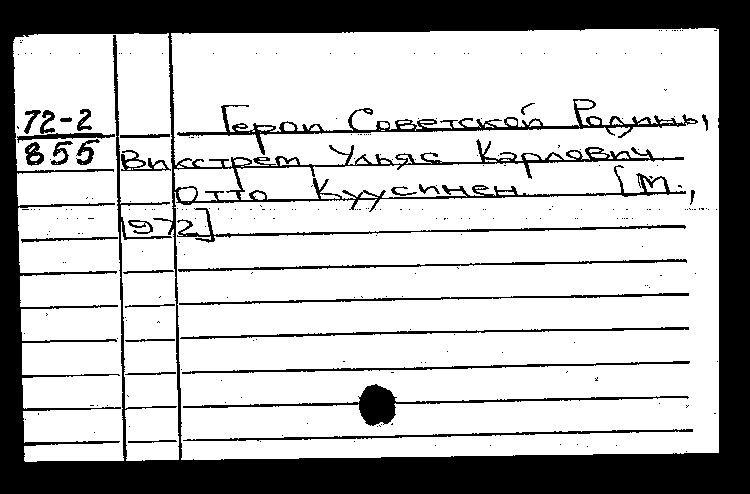 72-2 Герои Советской Родины,
855 Викстрем, Ульяс Карлович
Отто Куусинен. [М.,
1972]